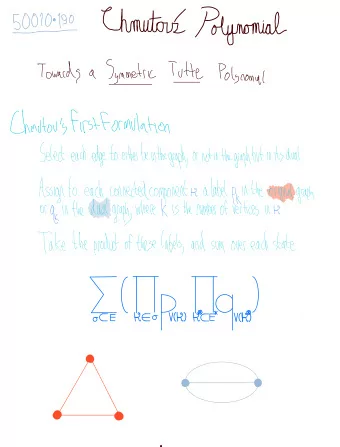 50010•190
Chmutov's Polynomial
Towards a Symmetric Tutte Polynomial
Chmutov's First Formulation
Select each edge to either be in the graph, or not in the graph but in its dual
Assign to each connected component K a label p_k in the graph
or q_k in the dual graph, where K is the number of vertices in K
Take the product of these labels, and sum over each state
∑_{σ⊂E} ( ∏_{K∈σ} p_{V(K)} ∏_{K*⊂E*} q_{V(K*)} )